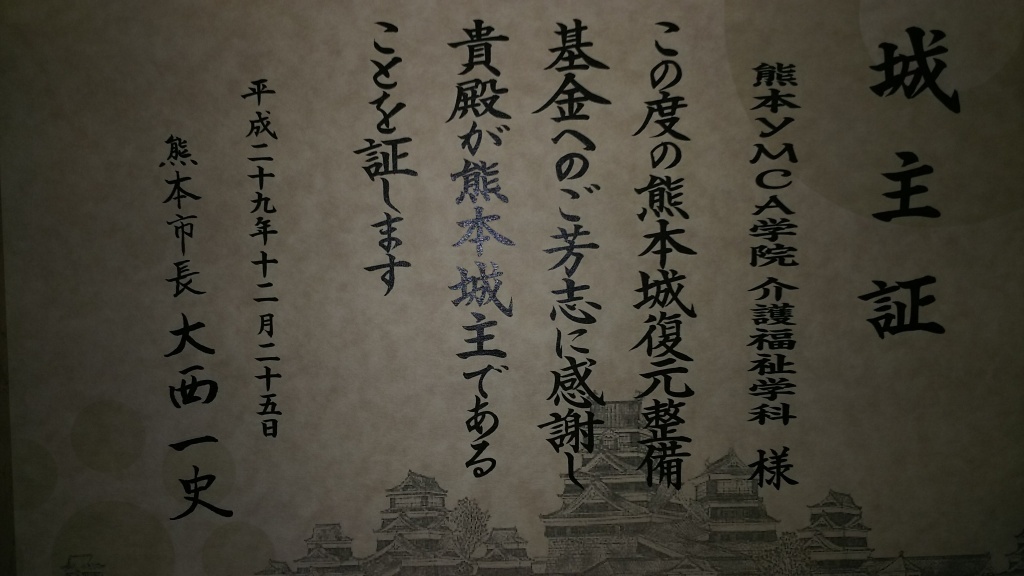 城主証
熊本YMCA学院 介護福祉学科 様
この度の熊本城復元整備
基金へのご芳志に感謝し
貴殿が熊本城主である
ことを証します
平成二十九年十二月二十五日
熊本市長 大西一史